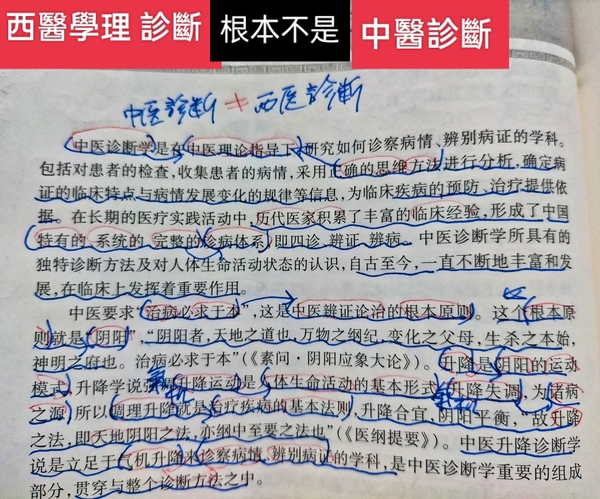 西醫學理 診斷 根本不是 中醫診斷
中医診断 ≠ 西医診断
中医诊断学是在中医理论指导下,研究如何诊察病情、辨别病证的学科。
包括对患者的检查,收集患者的病情,采用正确的思维方法进行分析,确定病
证的临床特点与病情发展变化的规律等信息,为临床疾病的预防、治疗提供依
据。在长期的医疗实践活动中,历代医家积累了丰富的临床经验,形成了中国
特有的、系统的、完整的诊病体系,即四诊、辨证、辨病。中医诊断学所具有的
独特诊断方法及对人体生命活动状态的认识,自古至今,一直不断地丰富和发
展,在临床上发挥着重要作用。
中医要求“治病必求于本”,这是中医辨证论治的根本原则。这个根本原
则就是“阴阳”,“阴阳者,天地之道也,万物之纲纪,变化之父母,生杀之本始,
神明之府也。治病必求于本”(《素问·阴阳应象大论》)。升降是阴阳的运动
模式,升降学说强调升降运动是人体生命活动的基本形式,升降失调,为诸病
之源,所以调理升降就是治疗疾病的基本法则,升降合宜,阴阳平衡,故“升降
之法,即天地阴阳之法,亦纲中至要之法也”(《医纲提要》)。中医升降诊断学
说是立足于气机升降来诊察病情、辨别病证的学科,是中医诊断学重要的组成
部分,贯穿与整个诊断方法之中。